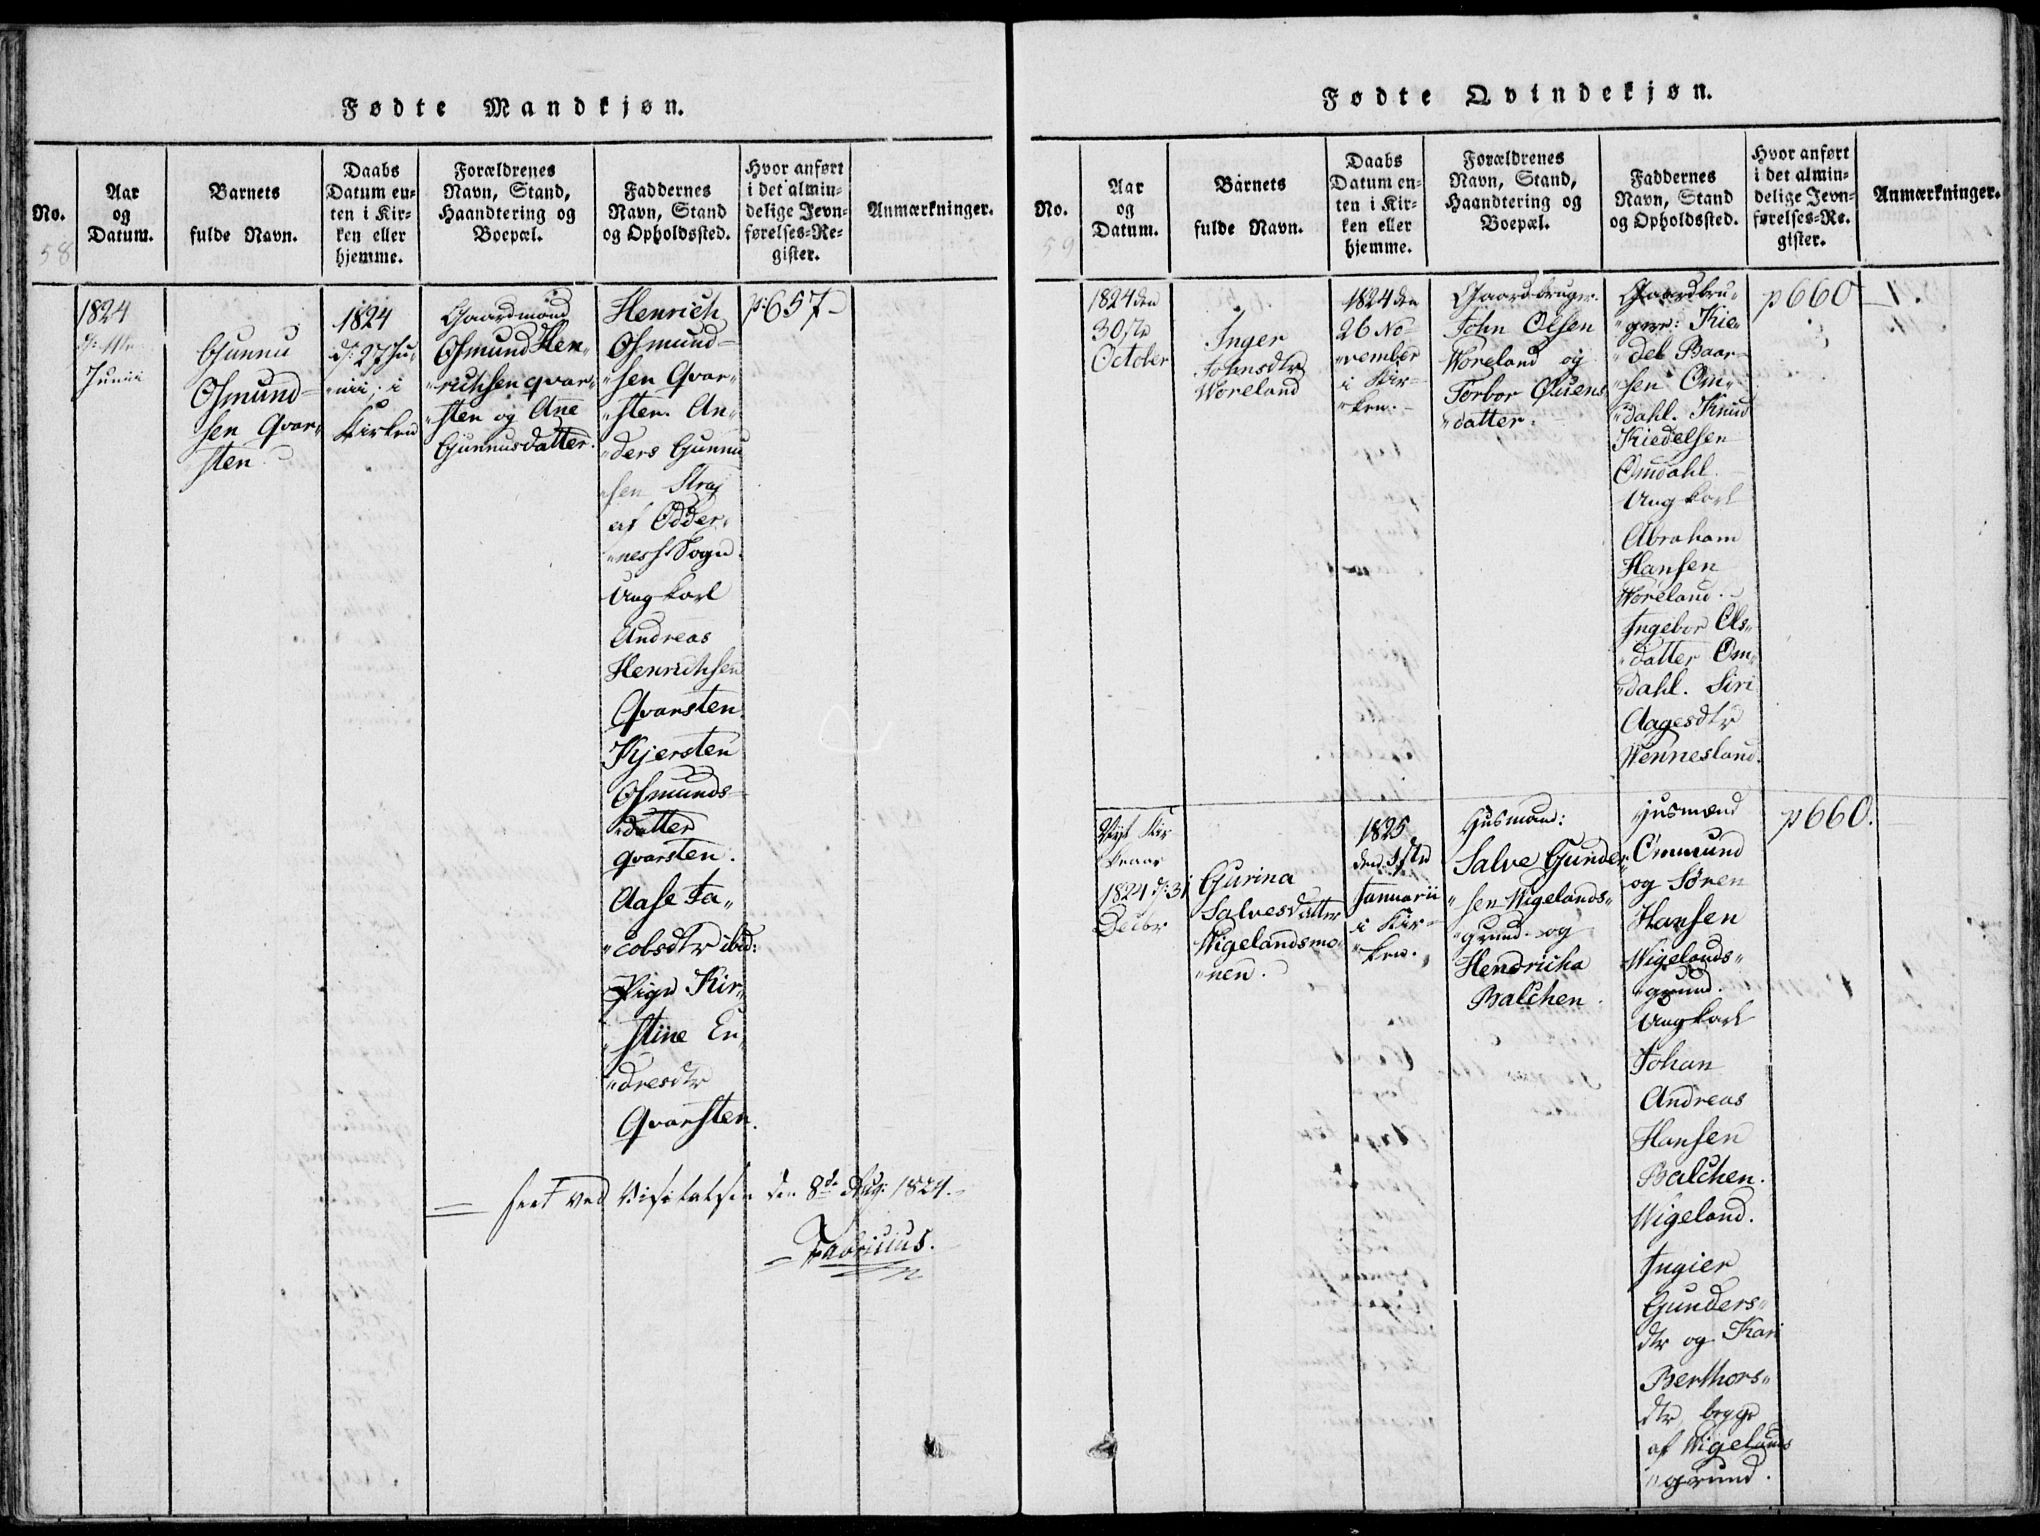 Fødte Mandkjøn.
No.
58
Aar
og
Datum.
Barnets
fulde Navn.
Daabs
Datum en-
ten i Kir-
ken eller
hjemme.
Forældrenes
Navn, Stand,
Haandtering og
Boepæl.
Faddernes
Navn, Stand
og Opholdssted.
Hvor anført
i det almin-
delige Jevn-
førelses-Re-
gister.
Anmærkninger.
1824
Junii
Gunnu
Osmund-
sen Qvar-
sten.
1824
d: 27 Ju-
nii, i
Kirken
Gaardmand
Osmund Hen-
richsen qvar-
sten og Ane
Gunnusdatter.
Henrich
Osmund-
sen Qvar-
sten. An-
ders Gunnu
sen Straj
af Odder-
ness Sogn.
Ungkarl
Andreas
Henrichsen
Qvarsten.
Kjersten
Osmunds-
datter
qvarsten.
Aase Ja-
cobsdtr ibid:
Pige Kir-
stine En-
dresdtr
Qvarsten.
p: 657-
seet ved Visitatsen den 8de Aug: 1824.
Fabricius.
Fødte Qvindekjøn.
No.
59
Aar
og
Datum.
Barnets
fulde Navn.
Daabs
Datum en-
ten i Kir-
ken eller
hjemme.
Forældrenes
Navn, Stand,
Haandtering og
Boepæl.
Faddernes
Navn, Stand
og Opholdssted.
Hvor anført
i det almin-
delige Jevn-
førelses-Re-
gister.
Anmærkninger.
1824 den
30te
October
Inger
Johnsdtr
Woreland
1824 den
26 No-
vember
i Kir-
ken.
Gaardbruger.
John Olsen
Woreland og
Torbor Ousens
datter.
Gaardbru-
gere: Kie-
del Baar-
sen Om-
dahl. Knud
Kiedelsen
Omdahl.
Ungkarl
Abraham
Hansen
Woreland.
Ingebor Ols-
datter Om-
dahl. Siri
Aagesdtr
Wennesland.
p 660
Nyt Kir
keaar
1824 d: 31
Decbr
Gurina
Salvesdatter
Wigelandsmo-
nen.
1825
den 1ste
Januarii
i Kir-
ken.
Husmand:
Salve Gunder-
sen Wigelands-
grund og
Hendricha
Balchen.
Husmænd
Ommund
og Søren
Hansen
Wigelands-
grund.
Ungkarl
Johan
Andreas
Hansen
Balchen.
Wigeland.
Ingier
Gunders-
dtr og Kari
Berthors-
dtr, begge
af Wigelands
grund.
p 660.